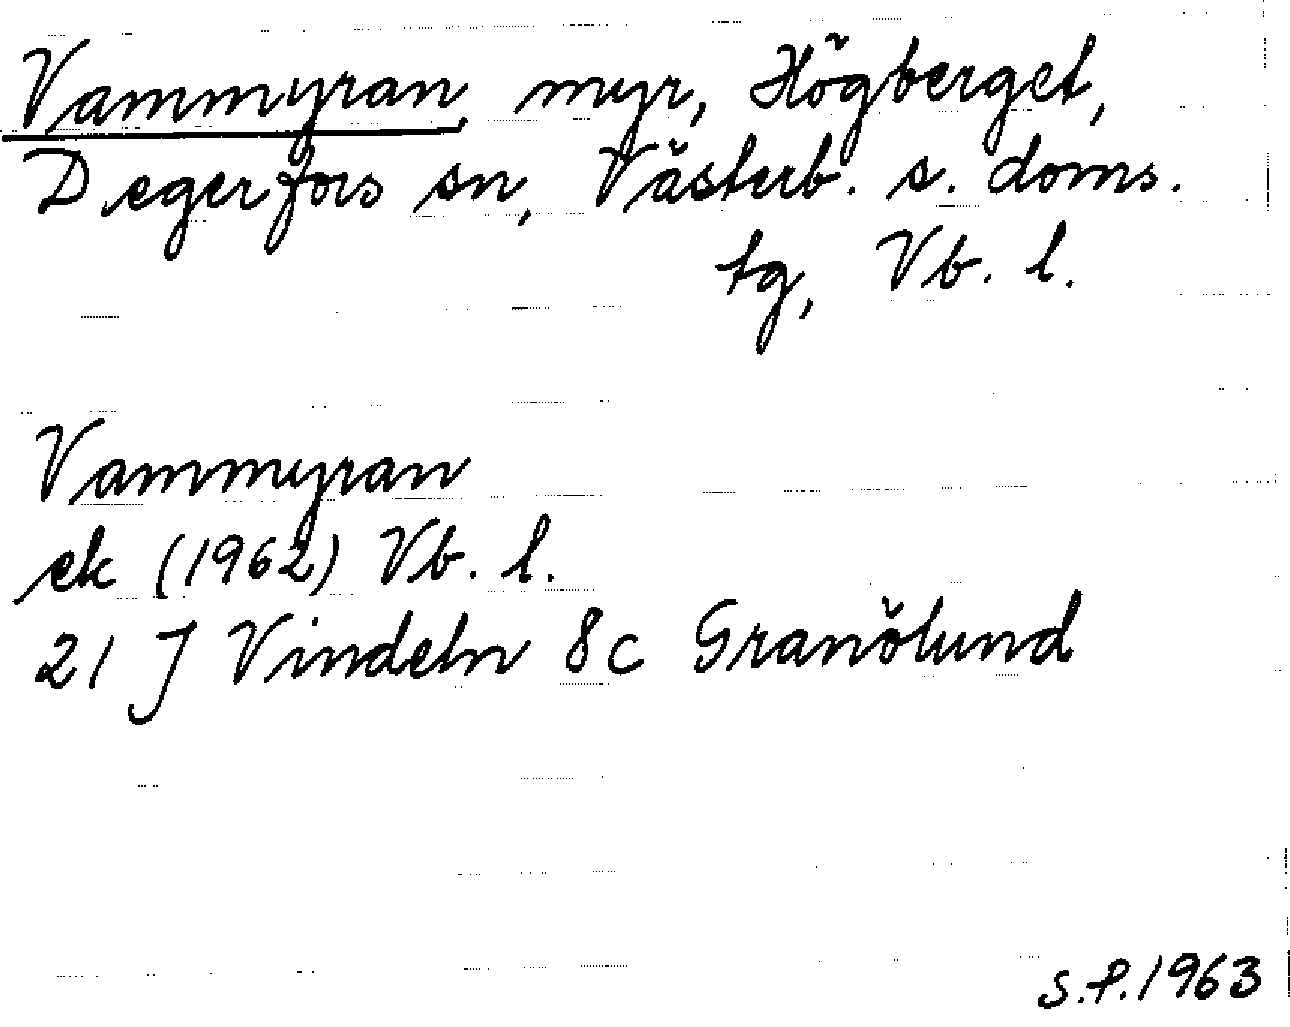 Vammyran, myr, Högberget,
Degerfors sn, Västerb. s. doms.
tg, Vb. l.
Vammyran
ek (1962) Vb. l.
21 J Vindeln 8c Granölund
S.P. 1963